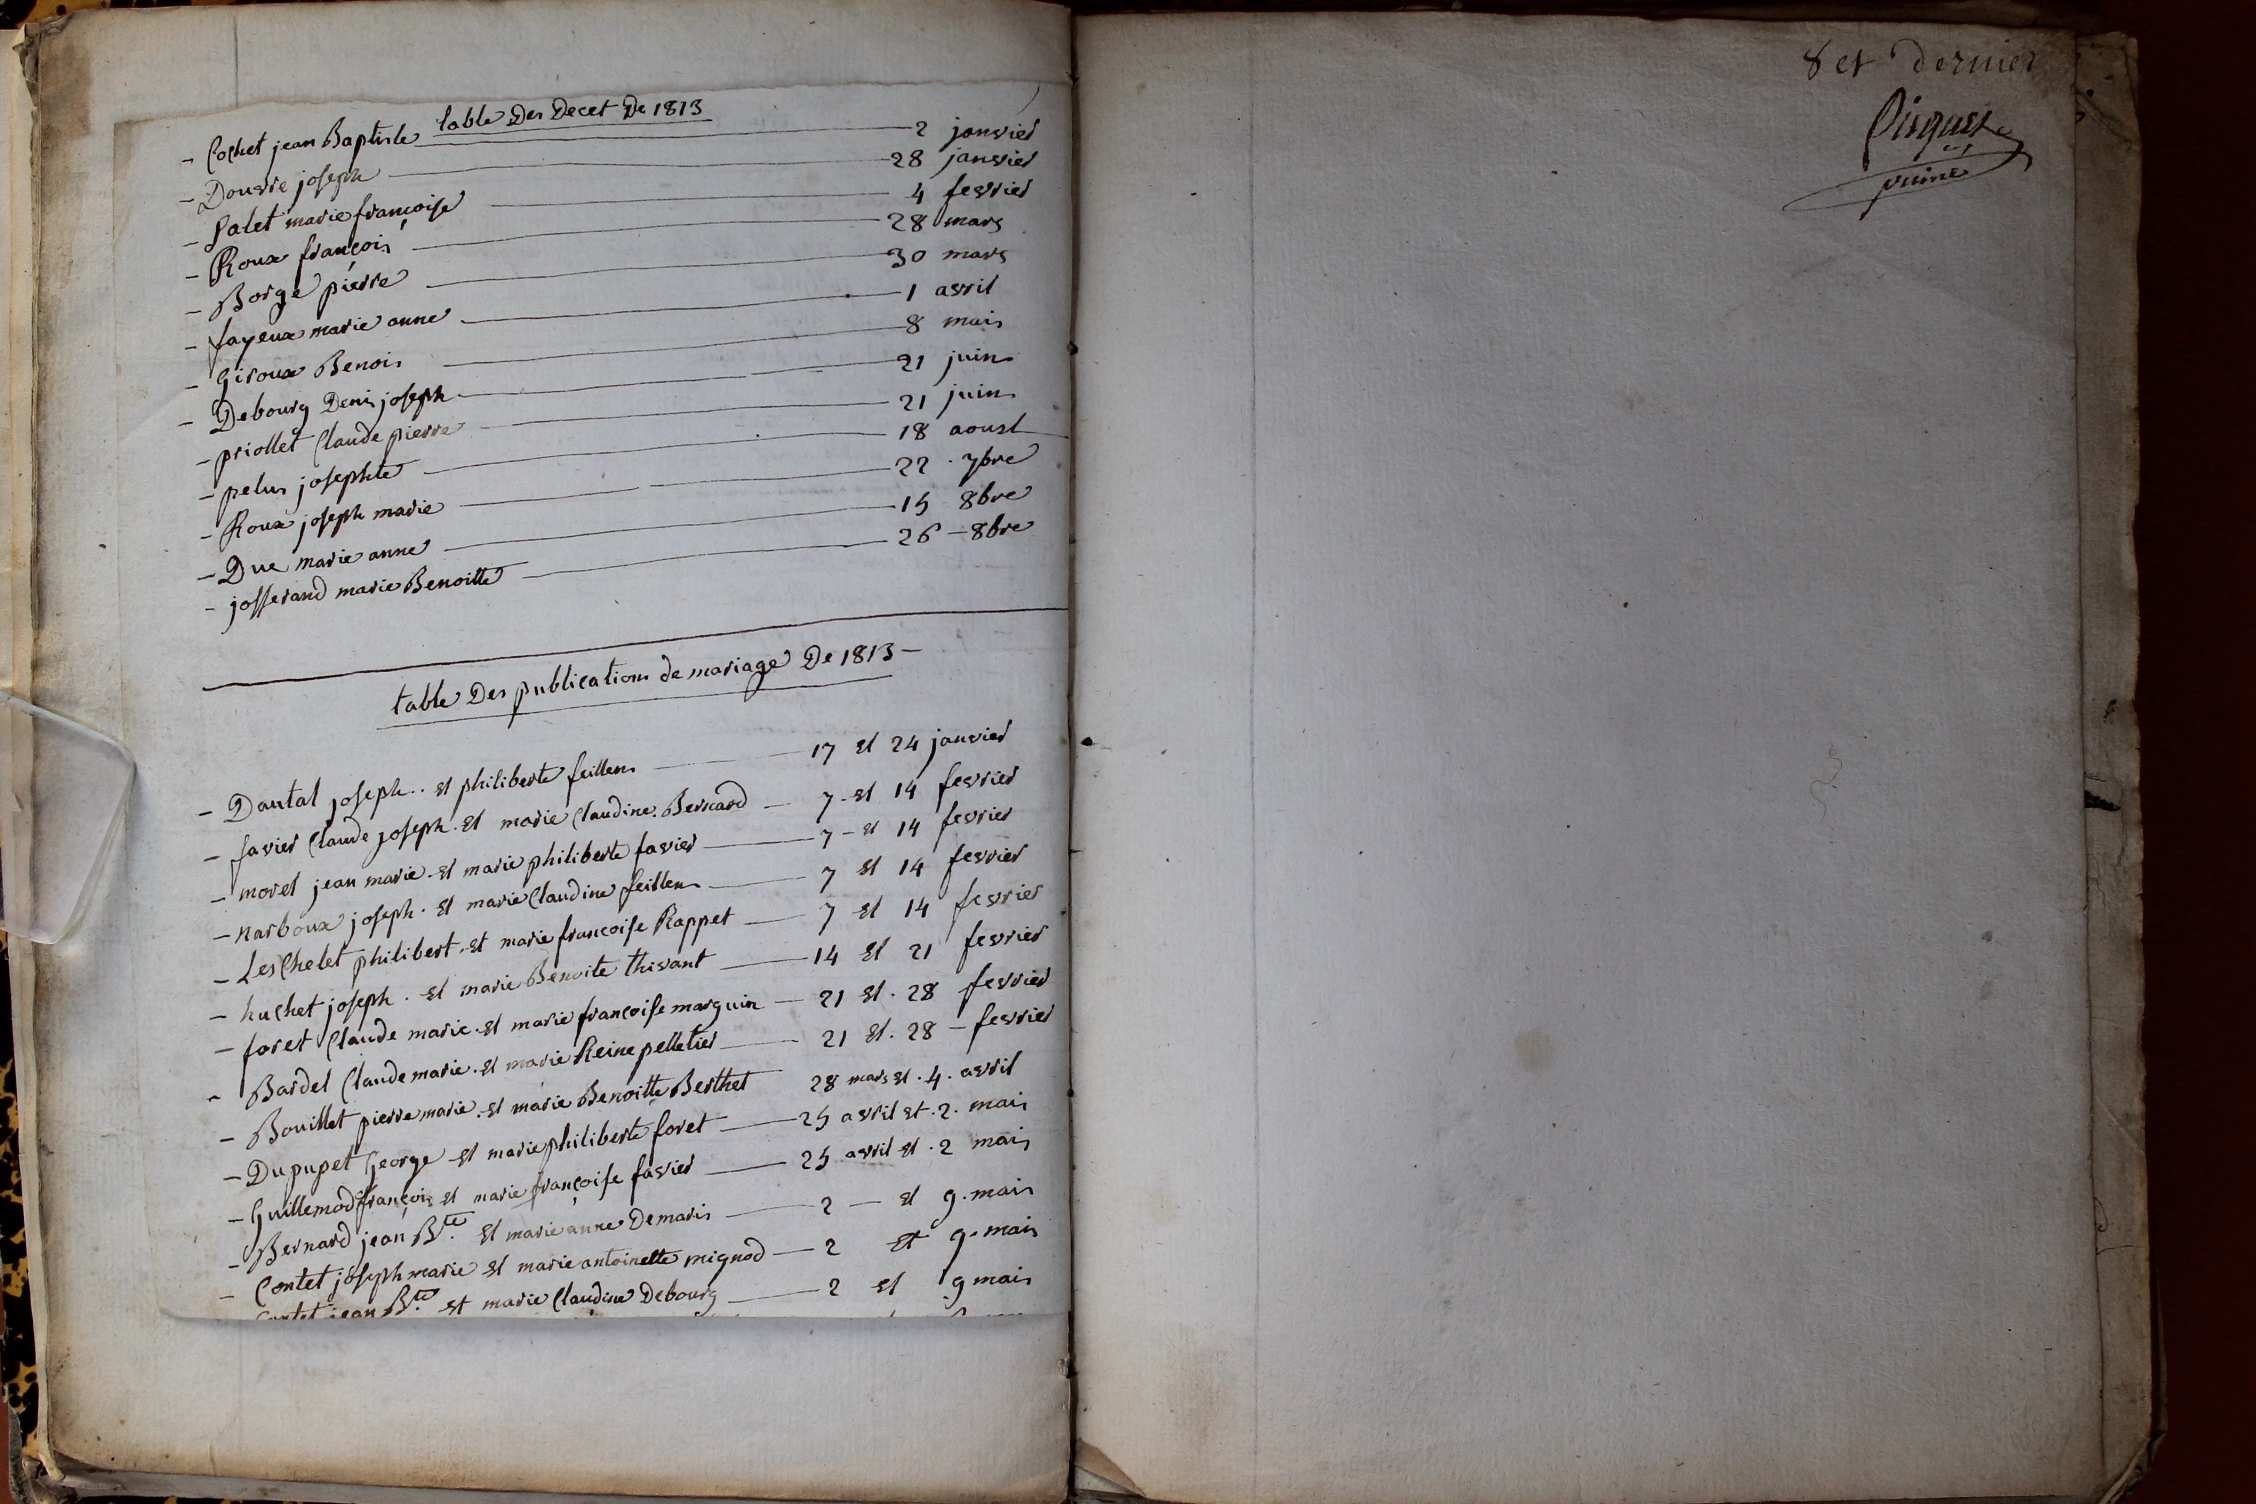 table Des Decet De 1813
- Cochet jean Baptiste 2 janvier
- Douvre joseph 28 janvier
- Palet marie francoise 4 fevrier
- Roux françois 28 mars
- Borge pierre 30 mars
- fayeux marie anne 1 avril
- Giroux Benois 8 mais
- Debourg Denis joseph 21 juin
- priollet Claude pierre 21 juin
- pelus josephte 18 aoust
- Roux joseph marie 22 . 7bre
- Due marie anne 15 8bre
- josserand marie Benoitte 26 - 8bre
table Des publications de mariage De 1813 -
- Dautal joseph .. et philiberte feillens 17 et 24 janvier
- favier Claude joseph . et marie Claudine . Bernard - 7 - et 14 fevrier
- morel jean marie - et marie philiberte favier 7 - et 14 fevrier
- Narboux joseph . et marie Claudine feillens 7 et 14 fevrier
- LesChelet philibert . et marie francoise Rappet 7 et 14 fevrier
- huchet joseph . et marie Benoite thivant 14 et 21 fevrier
- foret Claude marie . et marie françoise marguin - 21 et . 28 fevrier
- Bardel Claude marie . et marie Reine pelletier 21 et . 28 - fevrier
- Bouillet pierre marie . et marie Benoitte Berthet 28 mars et . 4 . avril
- Dupupet George et marie philiberte foret 25 avril et . 2 . mais
- Guillemod françois et marie françoise favier 25 avril et . 2 mais
- Bernard jean Bte. et marie anne Demaris 2 - et 9 . mais
- Contet joseph marie et marie antoinette mignod - 2 et 9 . mais
Contet jean Bte. et marie Claudine Debourg 2 et 9 mais
8 et dernier
puiné